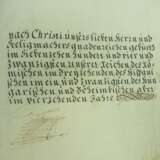 nach Christi unsers lieben Herrn und
Seeligmachers gnadenreichen geburth
im Siebenzehen hundert und vier und
Zwantzigsten, unserer Reichen des Rö-
mischen im dreyzehenden, des Hispani-
schen im ein und Zwantzigsten, des Hun-
garischen und Böheimbischen aber
im vierzehenden Jahre